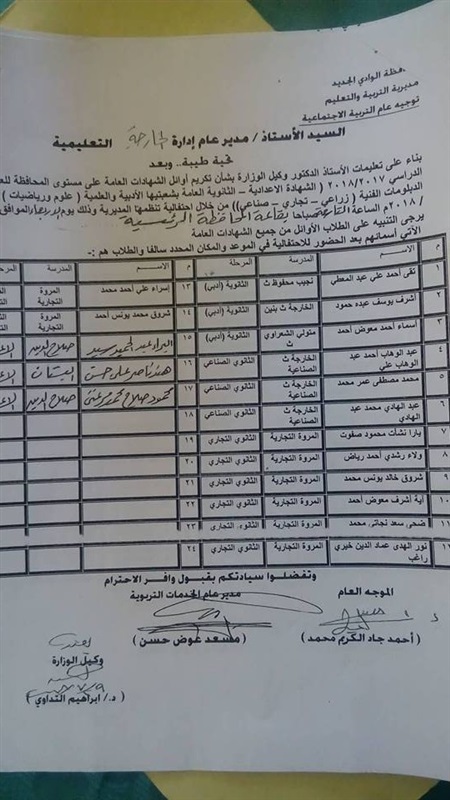 محافظة الوادي الجديد
مديرية التربية والتعليم
توجيه عام التربية الاجتماعية
السيد الأستاذ / مدير عام إدارة الخارجة التعليمية
تحية طيبة .. وبعد
بناء على تعليمات الأستاذ الدكتور وكيل الوزارة بشأن تكريم أوائل الشهادات العامة على مستوى المحافظة للعام
الدراسي ٢٠١٧/٢٠١٨ ( الشهادة الاعدادية - الثانوية العامة بشعبتيها الأدبية والعلمية ( علوم ورياضيات )
الدبلومات الفنية ( زراعي - تجاري - صناعي )) من خلال احتفالية تنظمها المديرية وذلك يوم الموافق
/ ٢٠١٨م الساعة صباحا بقاعة المحافظة الرئيسية
يرجى التنبيه على الطلاب الأوائل من جميع الشهادات العامة
الآتي أسمائهم بعد الحضور للاحتفالية في الموعد والمكان المحدد سالفا والطلاب هم :-
م الاســم المدرسة المرحلة م الاســم المدرسة المرحلة
١ تقى أحمد علي عبد المعطي نجيب محفوظ ث الثانوية (أدبي) ١٣ إسراء علي أحمد محمد المروة التجارية
٢ أشرف يوسف عبده حمود الخارجة ث بنين الثانوية (أدبي) ١٤ شروق محمد يونس أحمد المروة التجارية
٣ أسماء أحمد معوض أحمد متولي الشعراوي ث الثانوية (أدبي) ١٥ صلاح الدين
٤ عبد الوهاب أحمد عبد الوهاب علي الخارجة ث الصناعية الثانوي الصناعي ١٦ هند ناصر علي حسن البستان
٥ محمد مصطفى عمر محمد الخارجة ث الصناعية الثانوي الصناعي ١٧ محمود صلاح محمد صلاح الدين
٦ عبد الهادي محمد عبد الهادي الخارجة ث الصناعية الثانوي الصناعي ١٨
٧ يارا نشأت محمود صفوت المروة التجارية الثانوي التجاري ١٩
٨ ولاء رشدي أحمد رياض المروة التجارية الثانوي التجاري ٢٠
٩ شروق خالد يونس محمد المروة التجارية الثانوي التجاري ٢١
١٠ آية أشرف معوض أحمد المروة التجارية الثانوي التجاري ٢٢
١١ ضحى سعد نجاتي محمد المروة التجارية الثانوي التجاري ٢٣
١٢ نور الهدى عماد الدين خيري راغب المروة التجارية الثانوي التجاري ٢٤
وتفضلوا سيادتكم بقبول وافر الاحترام
الموجه العام مدير عام الخدمات التربوية
( أحمد جاد الكريم محمد ) ( مسعد عوض حسن )
يعتمد
وكيل الوزارة
( د./ ابراهيم التداوي )